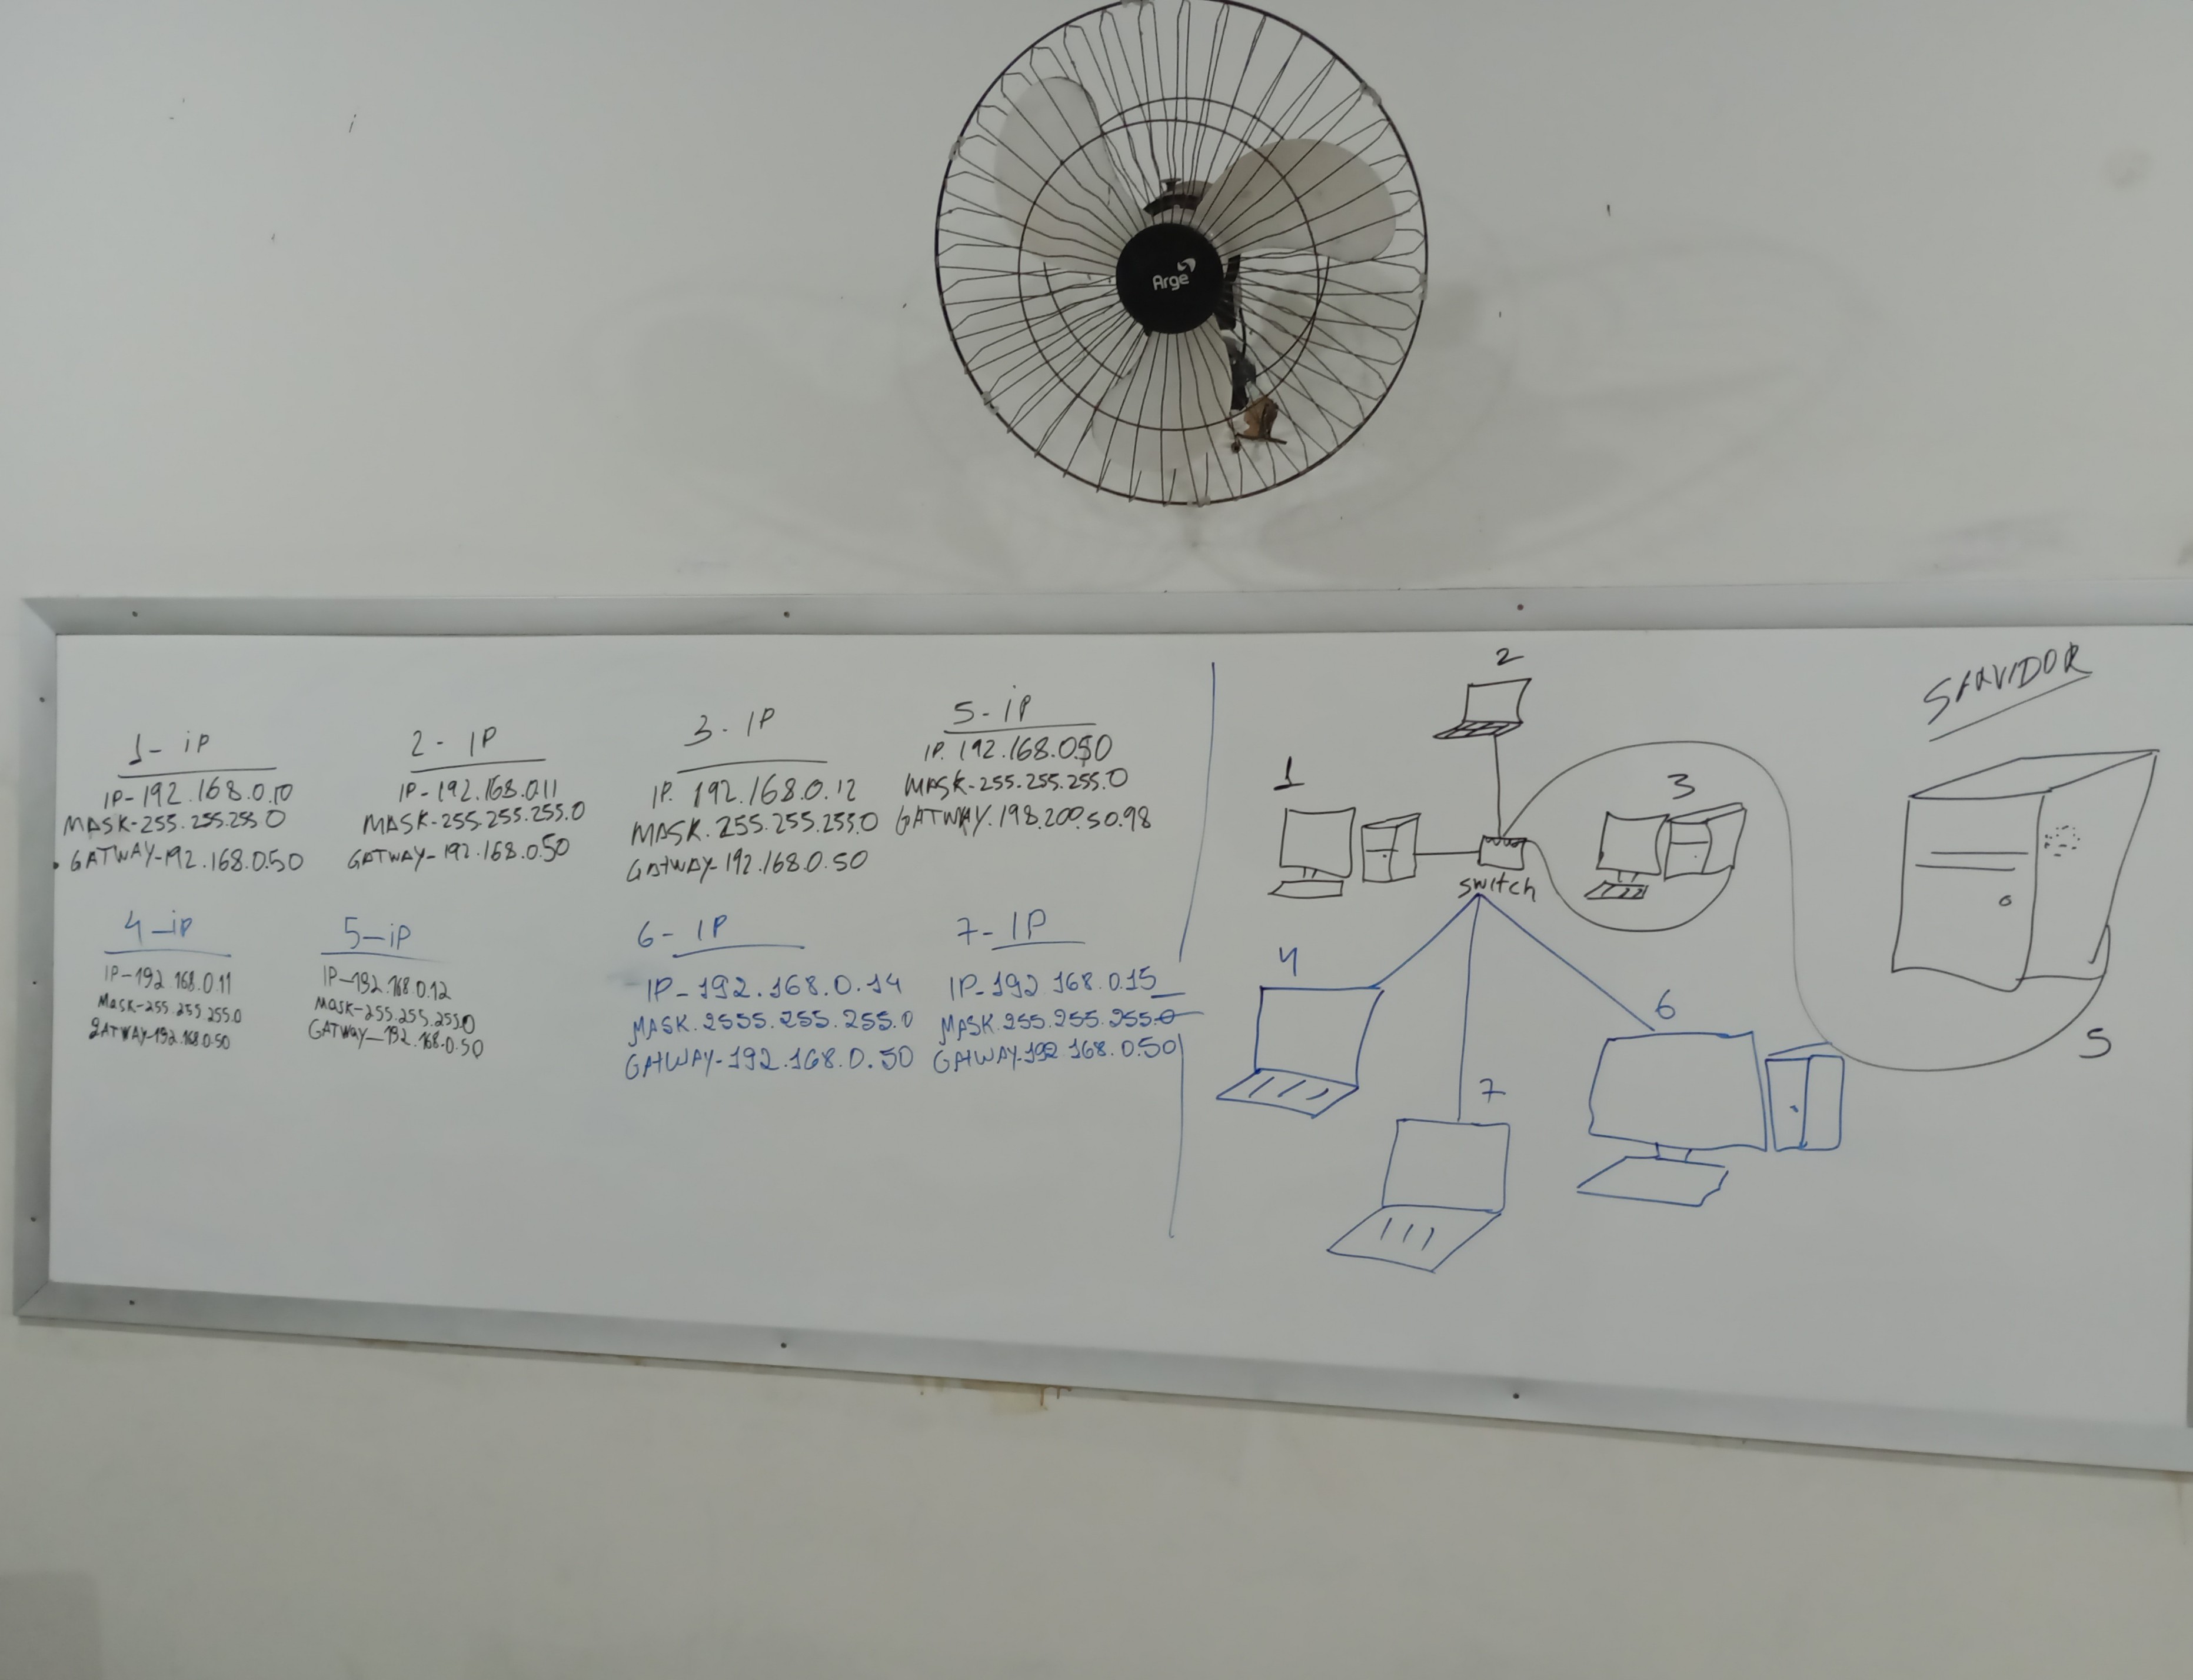 Arge
1- iP
IP-192.168.0.10
MASK-255.255.255.0
GATWAY-192.168.0.50
2- IP
IP-192.168.011
MASK-255.255.255.0
GATWAY-192.168.0.50
3- IP
IP. 192.168.0.12
MASK.255.255.255.0
GATWAY-192.168.0.50
5-iP
IP.192.168.0.50
MASK-255.255.255.0
GATWAY.198.200.50.98
4-iP
IP-192.168.0.11
MASK-255.255.255.0
GATWAY-192.168.0.50
5-iP
IP-192.168.0.12
MASK-255.255.255.0
GATWAY-192.168.0.50
6- IP
IP-192.168.0.14
MASK.2555.255.255.0
GATWAY-192.168.0.50
7- IP
IP-192 168.0.15
MASK.255.255.255.0
GATWAY-192.168.0.50
2
SERVIDOR
1
3
switch
4
6
5
7